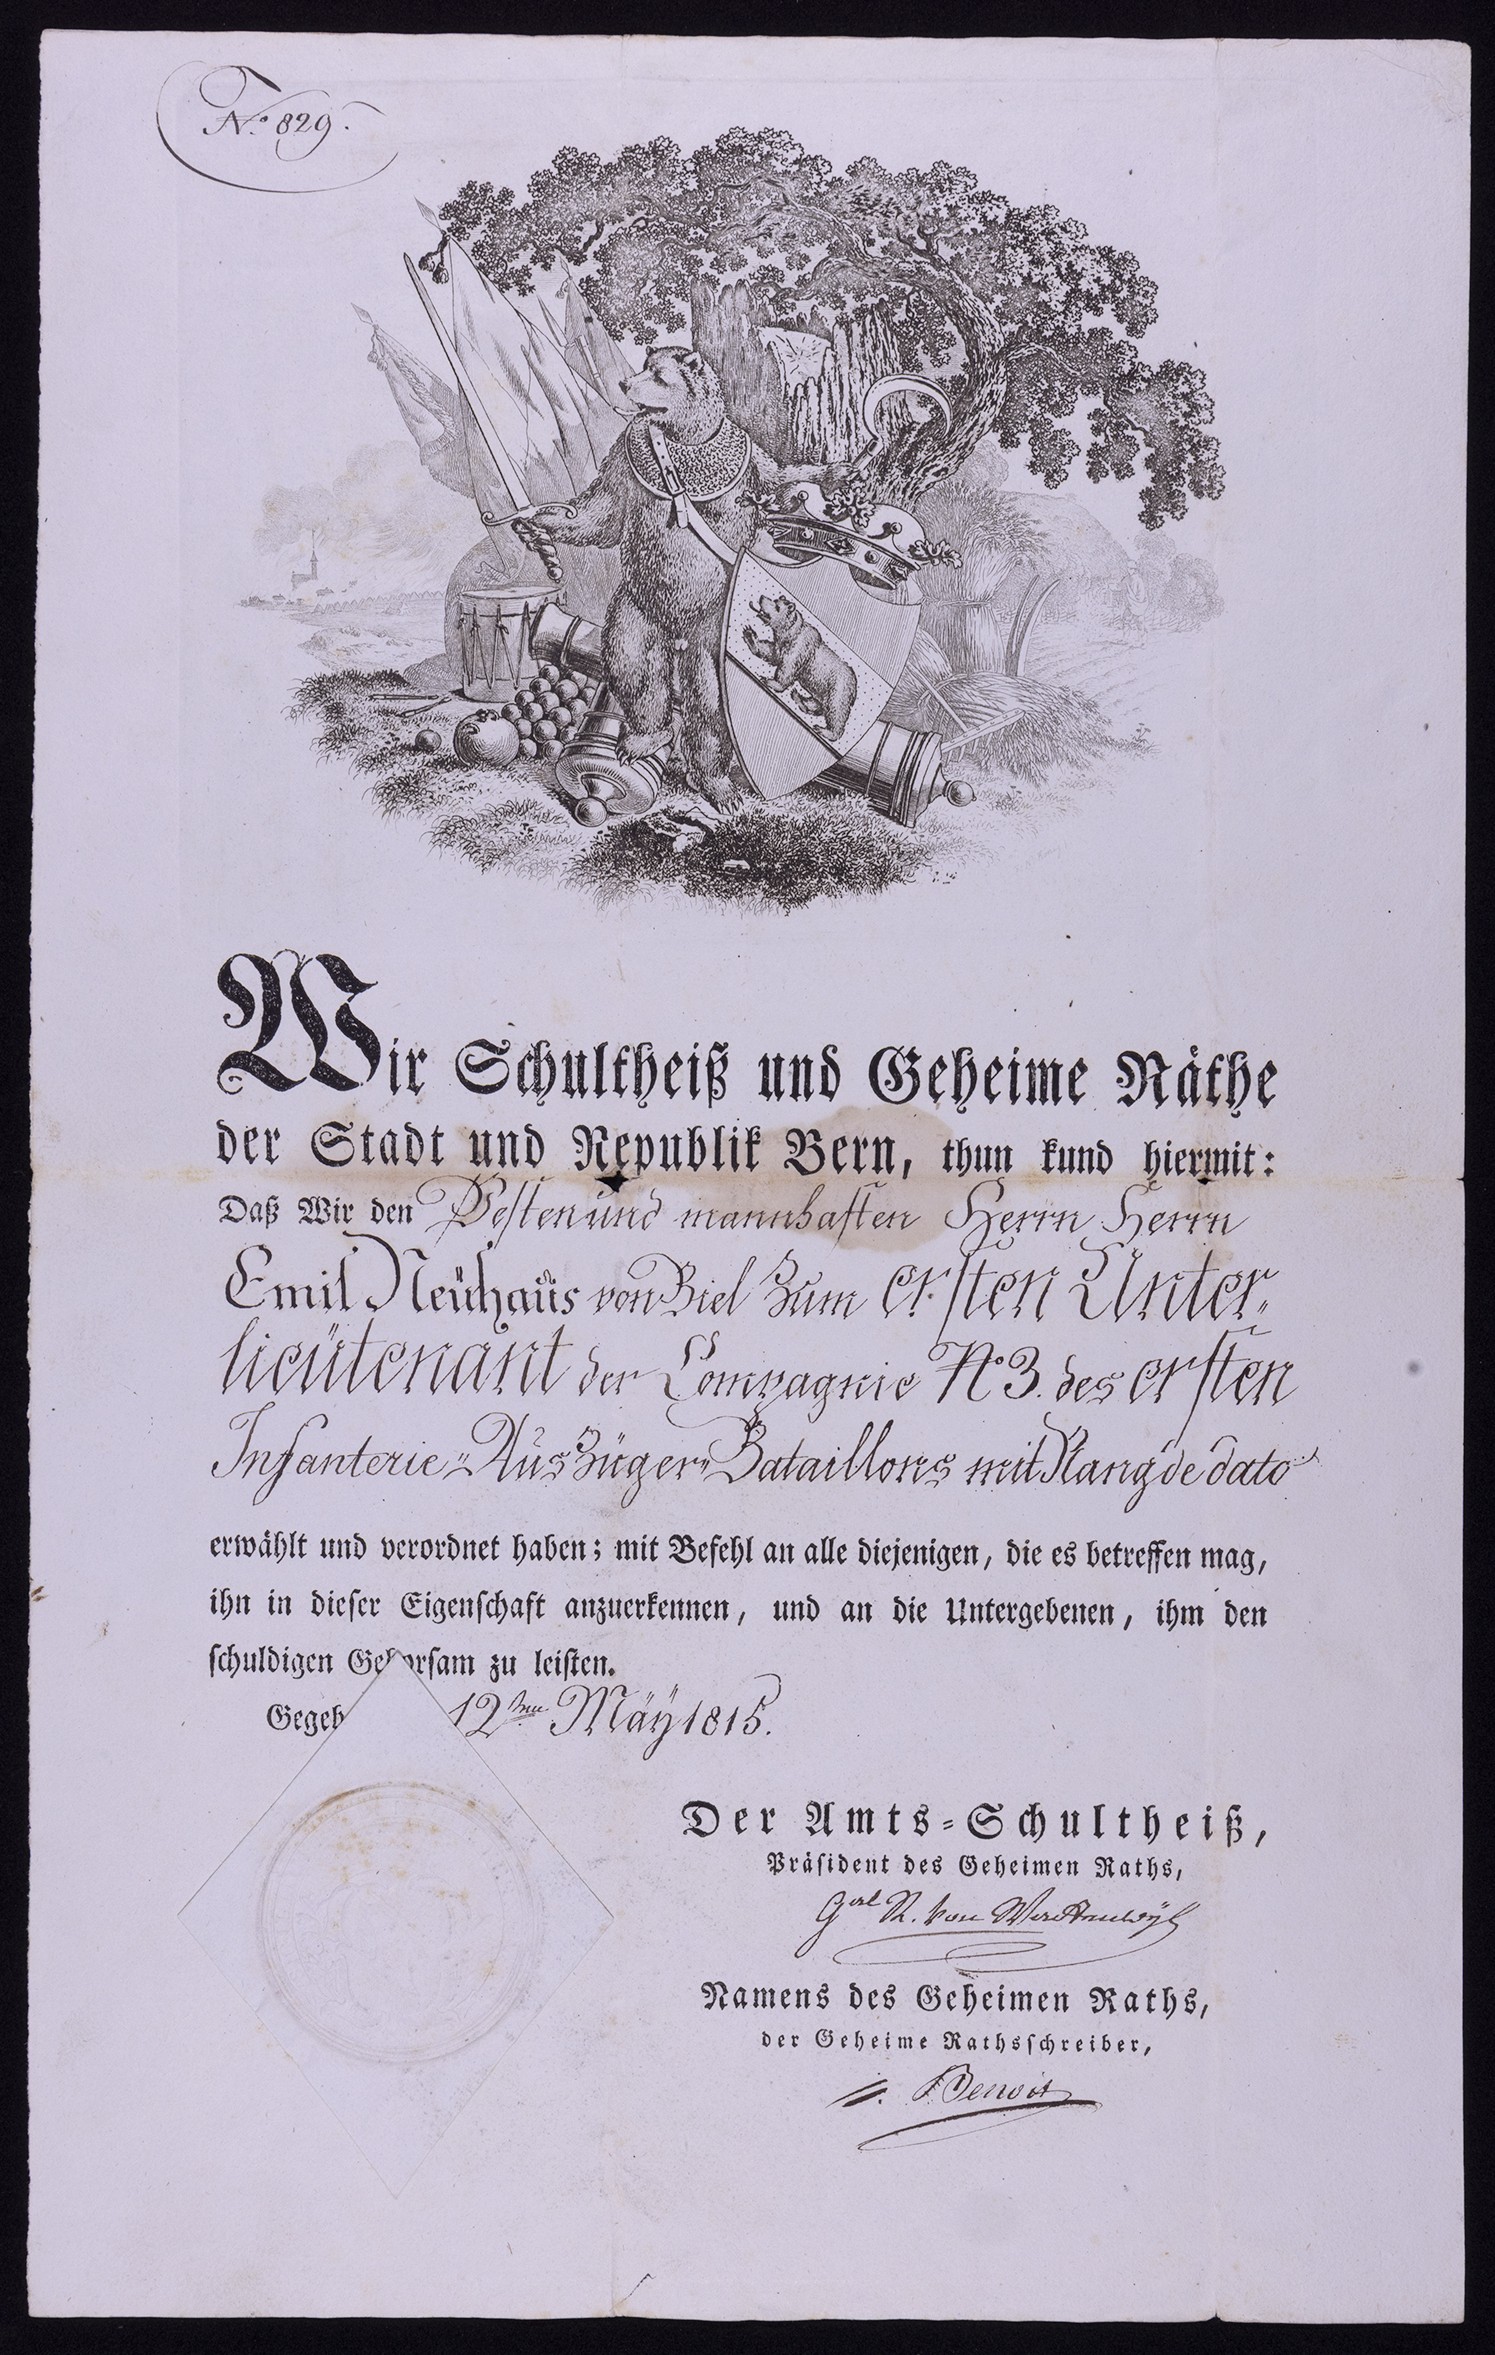 N.° 829.
Wir Schultheiß und Geheime Räthe
der Stadt und Republik Bern, thun kund hiermit:
Daß Wir den Vesten und mannhaften Herrn Herrn
Emil Neühaüs von Biel zum ersten Unter-
lieütenant der Compagnie N° 3. des ersten
Infanterie-Auszüger-Bataillons mit Rang de dato
erwählt und verordnet haben; mit Befehl an alle diejenigen, die es betreffen mag,
ihn in dieser Eigenschaft anzuerkennen, und an die Untergebenen, ihm den
schuldigen Gehorsam zu leisten.
Gegeb 12ten Mäy 1815.
Der Amts-Schultheiß,
Präsident des Geheimen Raths,
Gral R. von Wattenwyl
Namens des Geheimen Raths,
der Geheime Rathsschreiber,
Benoit